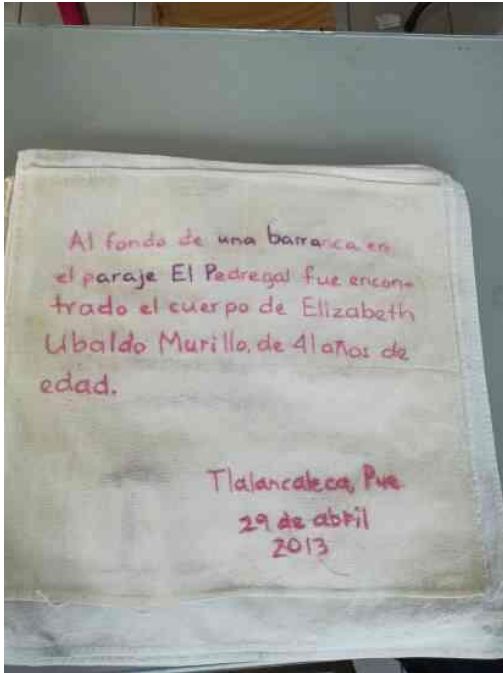 Al fondo de una barranca en
el paraje El Pedregal fue encon-
trado el cuerpo de Elizabeth
Ubaldo Murillo, de 41 años de
edad.
Tlalancaleca, Pue.
29 de abril
2013